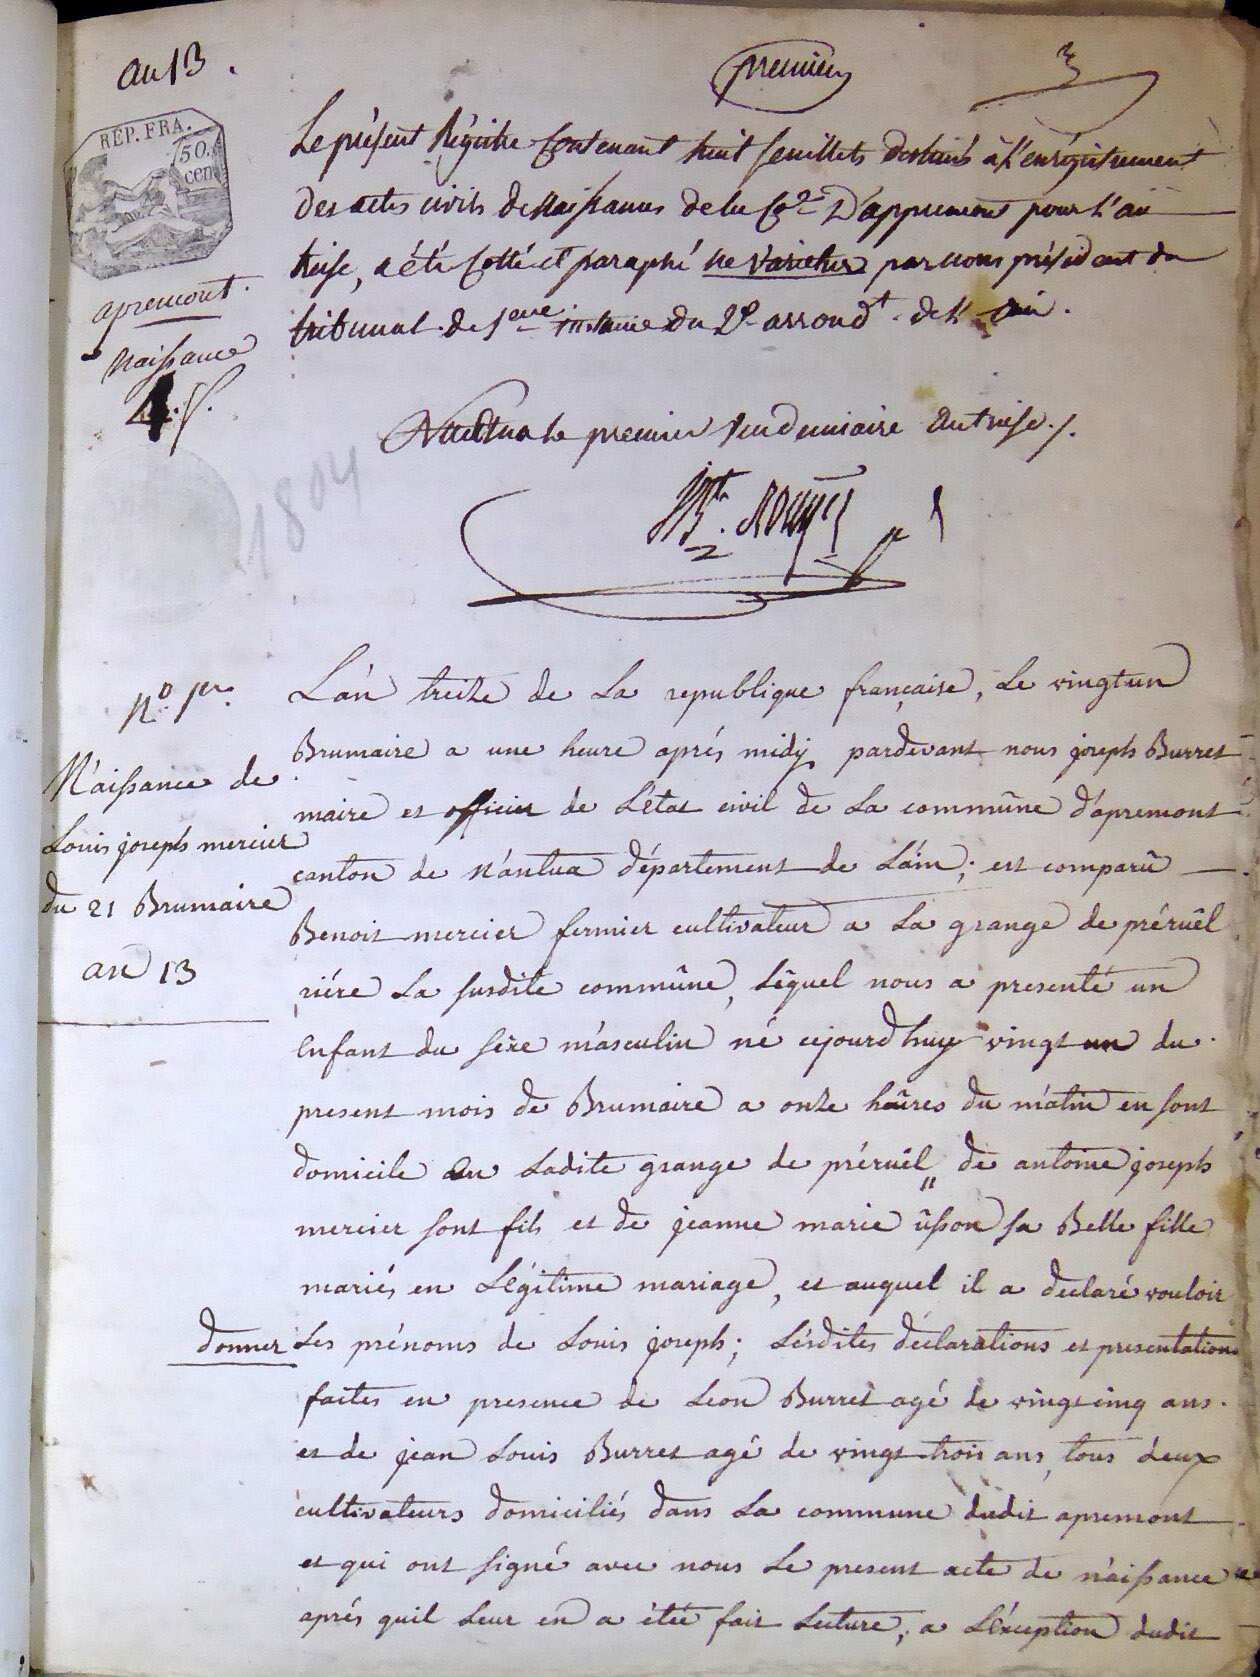 an 13.
premier
REP. FRA.
50.
cen
Le présent Régistre Contenant huit feuillets destinés à L'enrégistrement
Des actes civils de Naissances de la Co.ne D'appremont pour L'an
treise, a été Cotté et paraphé ne varietur par nous président du
tribunal de 1ere instance du 2e arrond.t de L'ain.
apremont.
Naissance
4. f.
Nantua le premier Vendemiaire an treise./.
1804
N.o 1er.
Naissance de
Louis joseph mercier
du 21 Brumaire
an 13
L'an treize de La republique française, Le vingtun
Brumaire a une heure aprés midy pardevant nous joseph Burret
maire et officier de L'état civil de La commûne d'apremont
canton de Nantua département de L'ain; est comparû
Benoit mercier fermier cultivateur a La grange de préruêl
riére La susdite commûne, Lêquel nous a presenté un
Enfant du sexe masculin né cejourd'huy vingt un du
present mois de Brumaire a onze heûres du mâtin en sont
domicile au Ladite grange de préruêl de antoine joseph
mercier sont fils et de jeanne marie ûsson sa Belle fille
mariés en Légitime mariage, et auquel il a declaré vouloir
donner Les prénoms de Louis joseph; Lésdites déclarations et presentations
faites en presence de Leon Burret agé de vingt cinq ans
et de jean Louis Burret agé de vingt trois ans, tous deux
cultivateurs domiciliés dans La commune dudit apremont
et qui ont signé avec nous Le present acte de naissance
aprés quil Leur en a étée fait Lecture, a L'éxception dudit